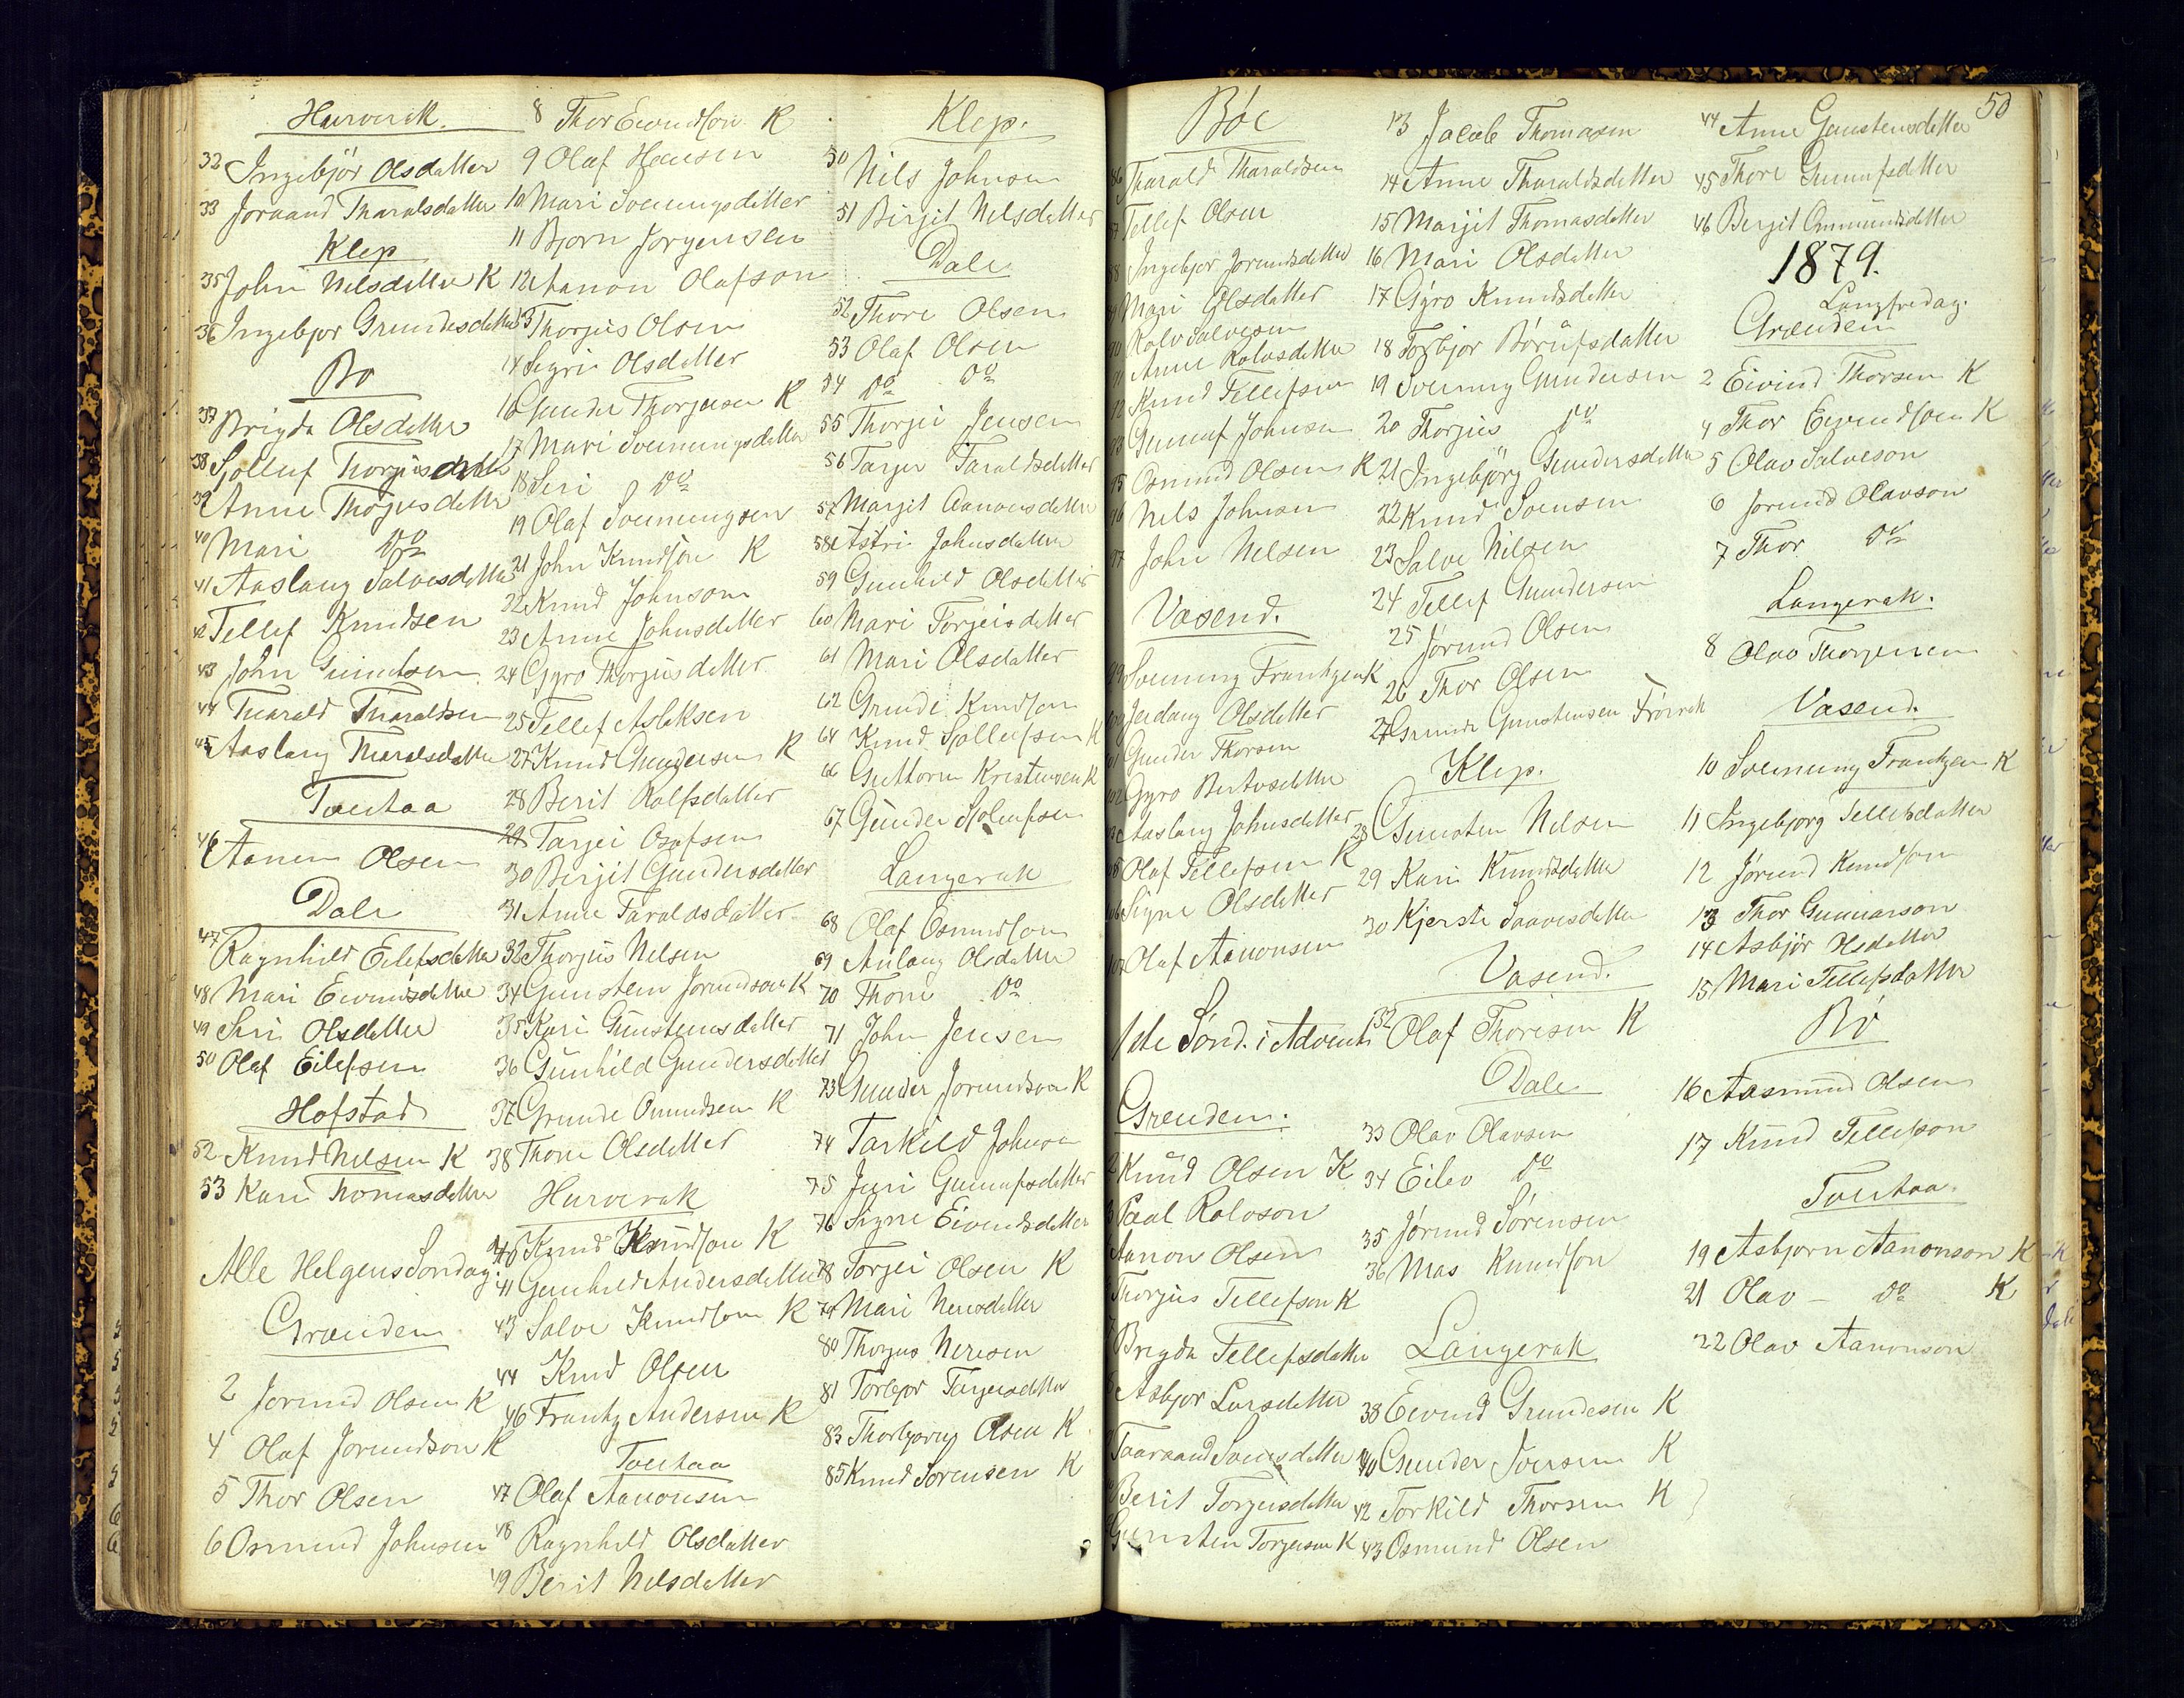 Hurverak.
32 Ingebjör Olsdatter
33 Joraand Tharalsdatter
Klep
35 John Nelsdatter K
36 Ingebjor Grundesdatter
Bo
37 Brigda Olsdatter
38 Sjollef Thorjusdatter
39 Anne Thorjusdatter
40 Mari Do
41 Aaslaug Salvesdatter
42 Tellef Knudsen
43 John Gunufsen
44 Tharald Tharaldsen
45 Aaslaug Tharalsdatter
Toeitaa
46 Aanen Olsen
Dale
47 Ragnhild Eilefsdatter
48 Mari Eivindsdatter
49 Siri Olsdatter
50 Olaf Eilefsen
Hofstad
52 Knud Nelsen K
53 Kari Thomasdatter
Alle Helgens Sondag.
Grænden
2 Jorund Olsen K
4 Olaf Jorundson K
5 Thor Olsen
6 Osmund Johnsen
8 Thor Eivindson K
9 Olaf Hansen
10 Mari Sveinungsdatter
11 Bjorn Jorgensen
12 Aanon Olafson
13 Thorjus Olsen
14 Sigri Olsdatter
16 Gunder Thorjusen K
17 Mari Sveinungsdatter
18 Siri Do
19 Olaf Sveinungsen
21 John Knudson K
22 Knud Johnson
23 Anne Johnsdatter
24 Gyro Thorjusdatter
25 Tellef Aslaksen
27 Knud Gundersen K
28 Berit Rolfsdatter
29 Tarjei Osufsen
30 Birgit Gundersdatter
31 Anne Taraldsdatter
32 Thorjus Nelsen
34 Gunsten Jorundson K
35 Kari Gunstensdatter
36 Gunhild Gundersdatter
37 Grunde Omundsen K
38 Thone Olsdatter
Hurverak
40 Knud Knudson K
41 Gunhild Andersdatter
43 Salve Knudson K
44 Knud Olsen
46 Frantz Andersen K
Toeitaa
47 Olaf Aanonsen
48 Ragnhild Olsdatter
49 Berit Nelsdatter
Klep.
50 Nils Johnsen
51 Birgit Nelsdatter
Dale
52 Thore Olsen
53 Olaf Olsen
54 Do Do
55 Thorjei Jensen
56 Targer Taraldsdatter
57 Margit Aanonsdatter
58 Astri Johnsdatter
59 Gunhild Olsdatter
60 Mari Torjeisdatter
61 Mari Olsdatter
62 Grunde Knudson
64 Knud Sjollefsen K
66 Guttorm Kristensen K
67 Gunder Sjolufsen
Langerak
68 Olaf Osmundson
69 Anlaug Olsdatter
70 Thone Do
71 John Jensen
73 Gunder Jorundson K
74 Tarkild Johnson
75 Juri Gunufsdatter
76 Signe Eivindsdatter
78 Torjei Olsen K
79 Mari Nerisdatter
80 Thorjus Nerisen
81 Torbjor Tarjeisdatter
83 Thorbjorng Olsen K
85 Knud Sorensen K
50
Böe
86 Tharald Tharaldsen
87 Tellef Olsen
88 Ingebjor Jorundsdatter
89 Mari Olsdatter
90 Rolv Salvesen
91 Anne Rolvsdatter
92 Knud Tellefsen
93 Gunuf Johnsen
95 Osmund Olsen K
96 Nels Johnsen
97 John Nelsen
Vasend.
99 Sveinung Frantzen K
100 Jerdaug Olsdatter
101 Gunder Thorsen
102 Gyro Bentvsdatter
103 Aaslaug Johnsdatter
105 Olaf Tellefsen K
106 Signe Olsdatter
107 Olaf Aanonsen
1ste Sönd. i Advent
Grænden.
2 Knud Olsen K
3 Paal Rolvson
Aanon Olsen
Thorjus Tellefson K
Bregda Tellefsdatter
Asbjor Larsdatter
Taaraand Sveinsdatter
Berit Torjusdatter
Gunsten Torjusen K
13 Jacob Thomasen
14 Anne Tharaldsdatter
15 Marjit Thomasdatter
16 Mari Olsdatter
17 Gyro Knudsdatter
18 Torbjor Börufsdatter
19 Sveinung Gundersen
20 Thorjus Do
21 Ingebjörg Gundersdatter
22 Knud Svensen
23 Salve Nilsen
24 Tellef Gundersen
25 Jörund Olsen
26 Thor Olsen
27 Grunde Gunstensen Frörak
Klep.
28 Gunsten Nelsen
29 Kari Knudsdatter
30 Kjersti Saavesdatter
Vasend.
32 Olaf Thoresen K
Dale
33 Olav Olavsen
34 Eilev Do
35 Jörund Sörensen
36 Mas Knudson
Langerak
38 Eivind Grundesen K
40 Gunder Joensen K
42 Torkild Thorsen K
43 Osmund Olsen
44 Anne Gunstensdatter
45 Thore Gunufsdatter
46 Bergit Ommundsdatter
1879.
Langfredag.
Grænden
2 Eivind Thorsen K
4 Thor Eivindsen K
5 Olav Salveson
6 Jorund Olavson
7 Thor Do
Langerak.
8 Olav Thorjussen
Vasend.
10 Sveinung Frantzen K
11 Ingebjorg Tellefsdatter
12 Jörund Knudson
13 Thor Gunnarson
14 Asbjör Olsdatter
15 Mari Tellefsdatter
Bö
16 Aasmund Olsen
17 Knud Tellefson
Toeitaa.
19 Asbjorn Aanonson K
21 Olav - Do K
22 Olav Aanonson